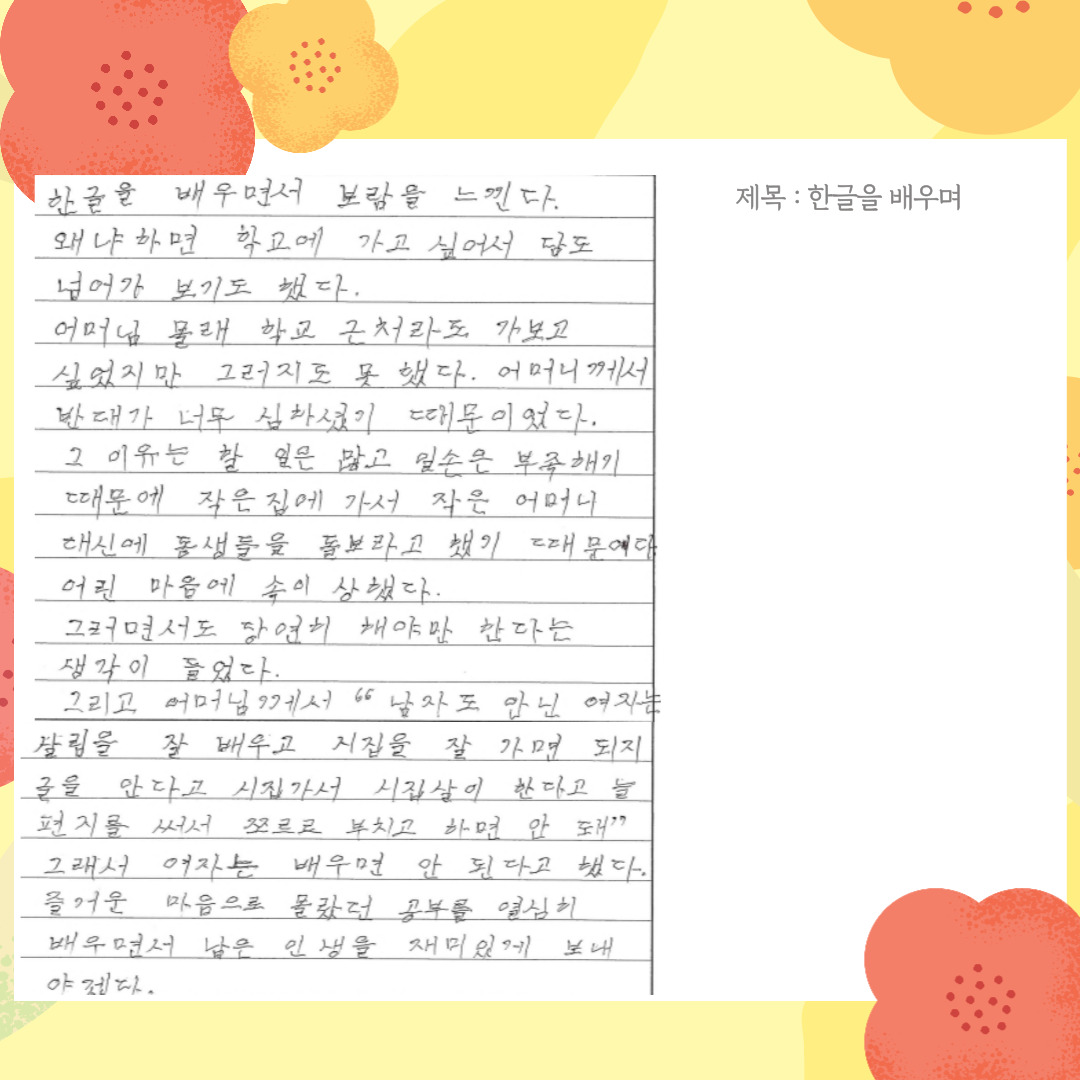 제목 : 한글을 배우며
한글을 배우면서 보람을 느낀다.
왜냐하면 학교에 가고 싶어서 담도
넘어가 보기도 했다.
어머님 몰래 학교 근처라도 가보고
싶었지만 그러지도 못 했다. 어머니께서
반대가 너무 심하셨기 때문이었다.
그 이유는 할 일은 많고 일손은 부족해기
때문에 작은집에 가서 작은 어머니
대신에 동생들을 돌보라고 했기 때문에다
어린 마음에 속이 상했다.
그러면서도 당연히 해야만 한다는
생각이 들었다.
그리고 어머님께서 “남자도 안닌 여자는
살림을 잘 배우고 시집을 잘 가면 되지
글을 안다고 시집가서 시집살이 한다고 늘
편지를 써서 쪼르르 부치고 하면 안 돼”
그래서 여자는 배우면 안 된다고 했다.
즐거운 마음으로 몰랐던 공부를 열심히
배우면서 남은 인생을 재미있게 보내
야겠다.